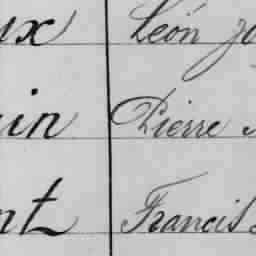 ux Léon Jo
in Pierre
nt Francis